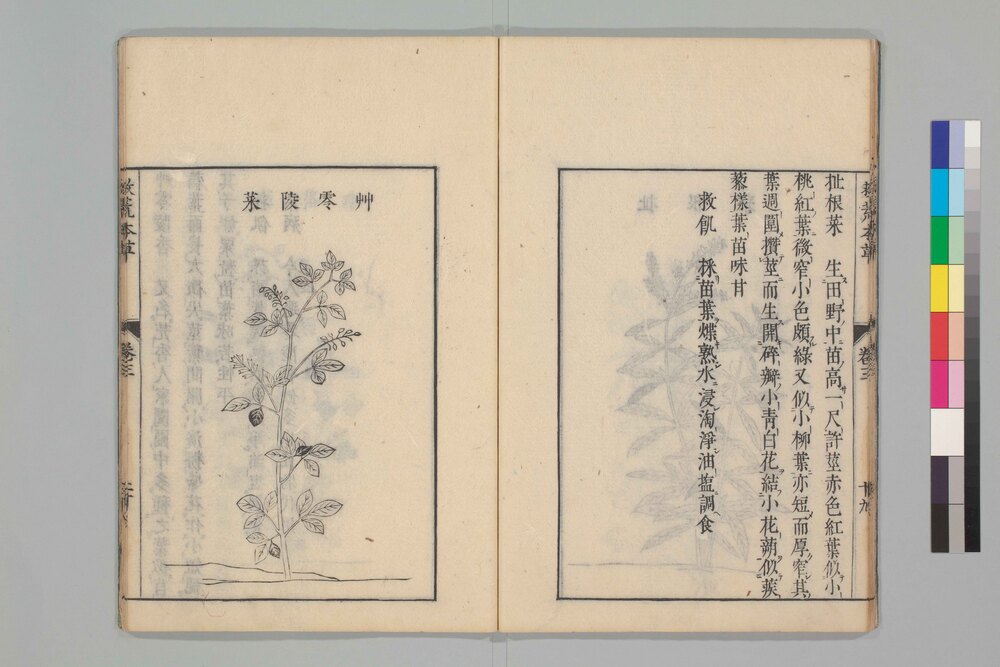 救荒本草
卷三
十九
扯根菜 生田野中苗高一尺許莖赤色紅葉似小
桃紅葉微窄小色頗綠又似小柳葉亦短而厚窄其
葉週圍攢莖而生開碎瓣小青白花結小花蒴似蒺
藜樣葉苗味甘
救飢 採苗葉煠熟水浸淘淨油塩調食
艸零陵菜
救荒本草
卷三